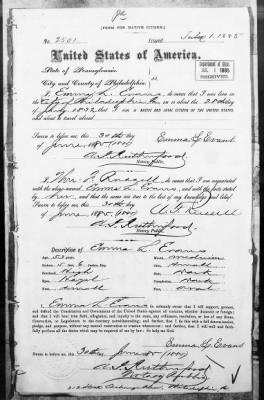 [FORM FOR NATIVE CITIZEN.]
No. 2501. Issued July 1. 1885
United States of America.
State of Pennsylvania
City and County of Philadelphia
ss.
Department of State
JUL 1 1885
RECEIVED
I, Emma L. Evans, do swear that I was born in
City of Philadelphia, Pa, on or about the 20 day
of July 1832 that I am a NATIVE AND LOYAL CITIZEN OF THE UNITED STATES,
and about to travel abroad
Sworn to before me, this 30th day
Emma L Evans
of June 1885
A. S. Rutherford
Notary Public.
I, Wm. T. Russell, do swear that I am acquainted
with the above-named Emma L Evans, and with the facts stated
by her, and that the same are true to the best of my knowledge and belief.
Sworn to before me, this 30th day
of June 1885
W. T. Russell
A. S. Rutherford
Notary Public.
Description of Emma L Evans
Age,
Stature,
Forehead, High
Eyes, Hazel
Nose, Small
Mouth, medium
Chin,
Hair, Dark
Complexion, Dark
Face,
Emma L. Evans, do solemnly swear that I will support, protect,
and defend the Constitution and Government of the United States against all enemies, whether domestic or foreign;
and that I will bear true faith, allegiance, and loyalty to the same, any ordinance, resolution, or law of any State,
Convention, or Legislature to the contrary notwithstanding; and further, that I do this with a full determination,
pledge, and purpose, without any mental reservation or evasion whatsoever; and further, that I will well and faith-
fully perform all the duties which may be required of me by law: So help me God.
Emma L Evans
Sworn to before me, this 30th June 1885
A. S. Rutherford
Notary Public